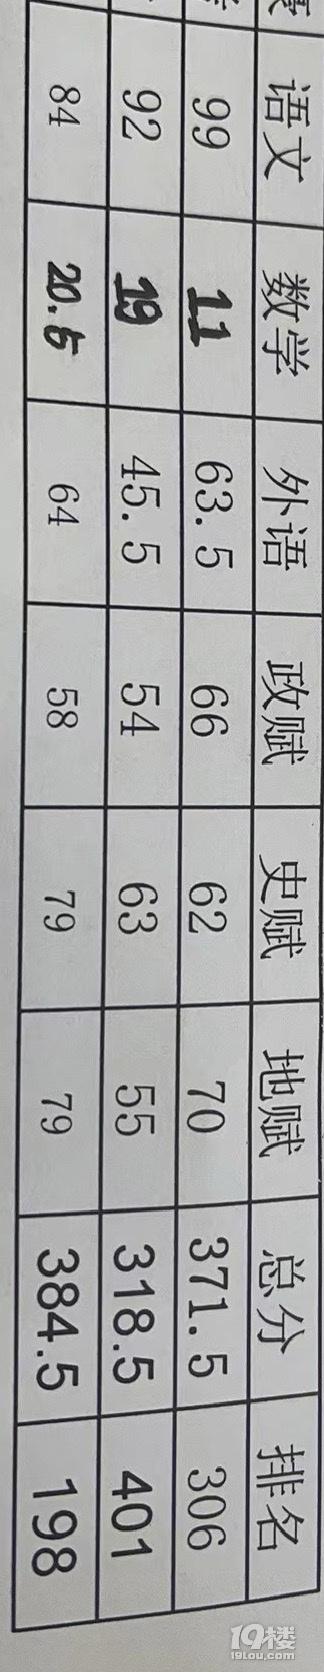 语文 数学 外语 政赋 史赋 地赋 总分 排名
99 11 63.5 66 62 70 371.5 306
92 19 45.5 54 63 55 318.5 401
84 20.5 64 58 79 79 384.5 198
19楼
19lou.com